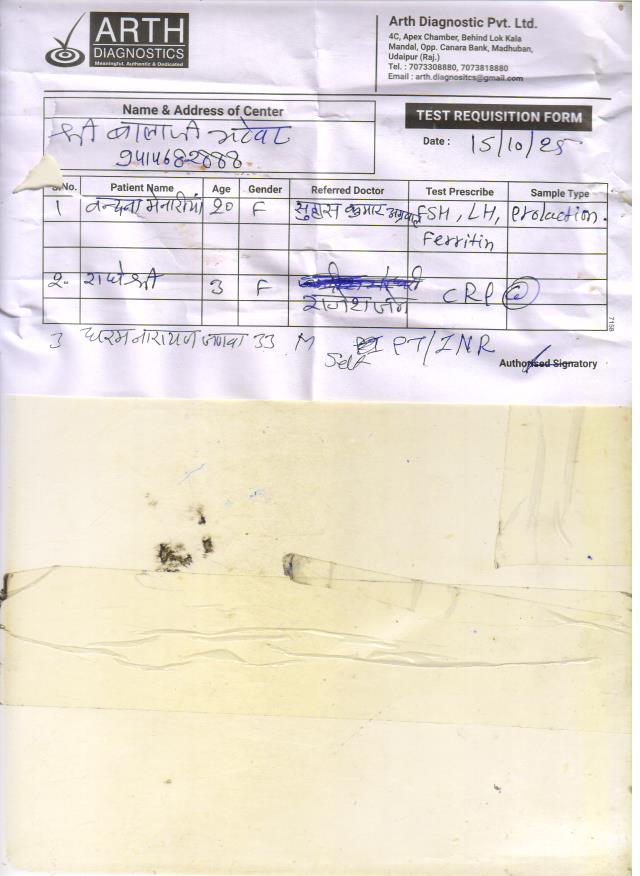 ARTH
DIAGNOSTICS
Meaningful, Authentic & Dedicated
Arth Diagnostic Pvt. Ltd.
4C, Apex Chamber, Behind Lok Kala
Mandal, Opp. Canara Bank, Madhuban,
Udaipur (Raj.)
Tel. : 7073308880, 7073818880
Email : arth.diagnositcs@gmail.com
Name & Address of Center
श्री बालाजी भटेवर
9414682888
TEST REQUISITION FORM
Date : 15/10/25
S.No. Patient Name Age Gender Referred Doctor Test Prescribe Sample Type
1 वन्दना मेनारीया 20 F सुहास कुमार अग्रवाल FSH, LH, Prolaction.
Ferritin
2. राजेश्री 3 F
राजेश जैन CRP
3 नारायण जणवा 33 M Self PT/INR
Authorised Signatory
7158